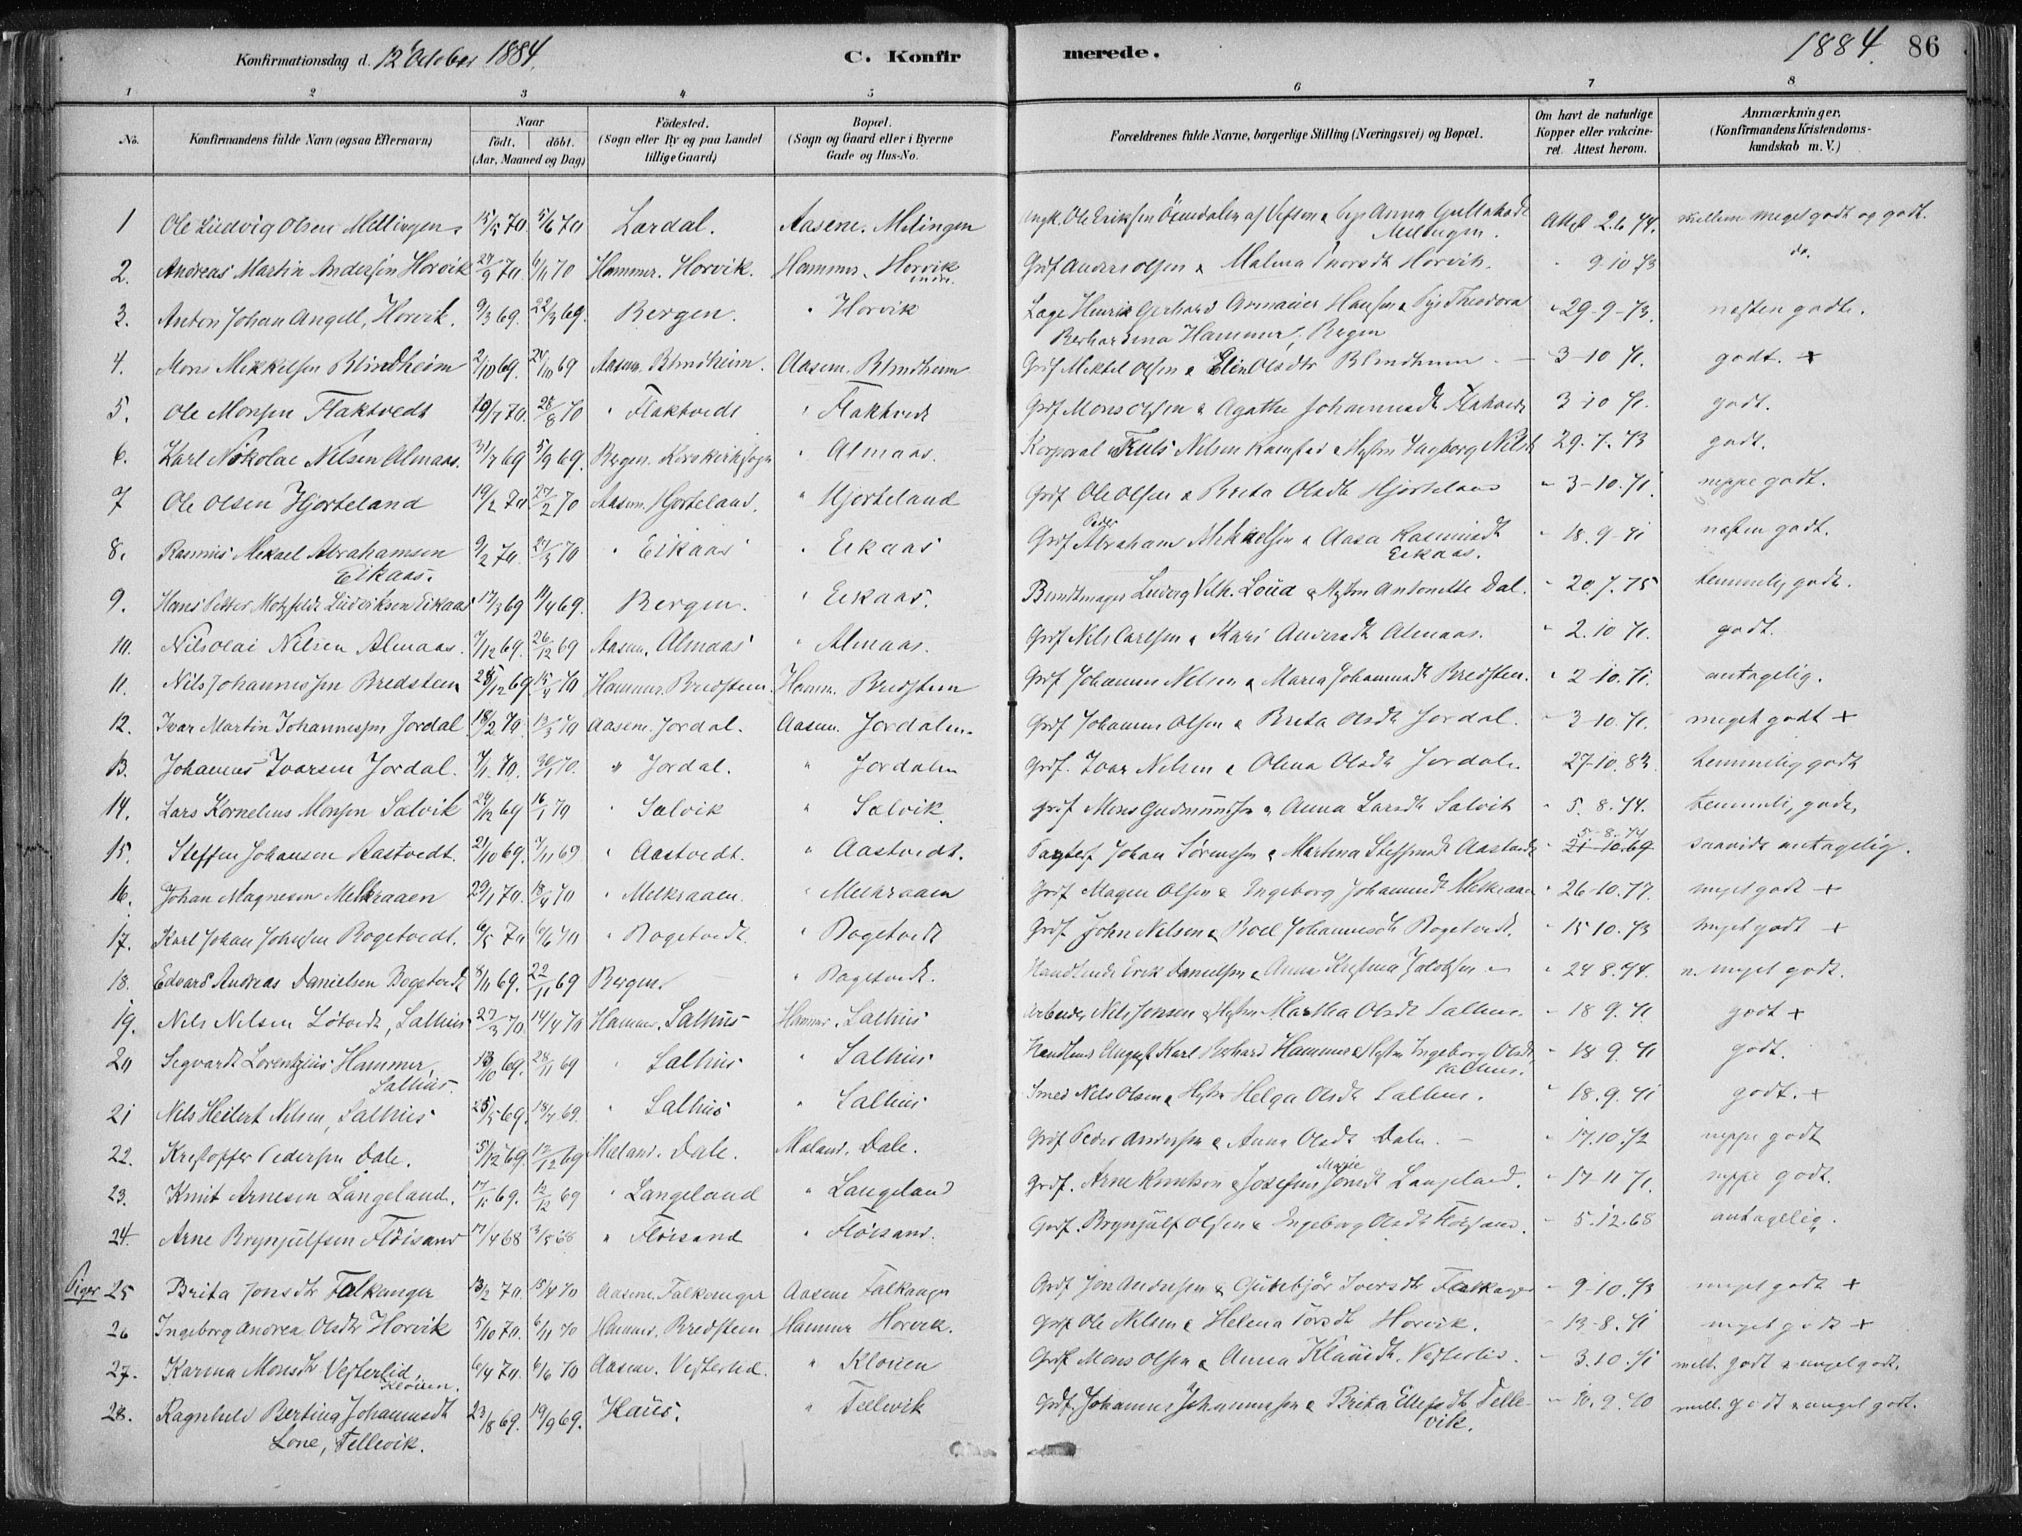 Konfirmationsdag d. 12 October 1884. C. Konfirmerede. 1884. 86
1 2 3 4 5 6 7 8
No. Konfirmandens fulde Navn (ogsaa Efternavn) Naar födt. döbt. (Aar, Maaned og Dag) Födested. (Sogn eller By og paa Landet tillige Gaard) Bopæl. (Sogn og Gaard eller i Byerne Gade og Hus-No. Forældrenes fulde Navne, borgerlige Stilling (Næringsvei) og Bopæl. Om havt de naturlige Kopper eller vakcineret. Attest herom. Anmærkninger. (Konfirmandens Kristendomskundskab m. V.)
1 Ole Ludvig Olsen Mellingen 15/5 70 5/6 70 Lardal. Aasene. Melingen Ole Eriksen af Vefsen Anna Attest 2.6 74. mellem meget godt og godt.
2. Andreas Martin Andersen Horvik 27/9 70 6/11 70 Hammer. Horvik. Hammer. Horvik indre. Grdf Anders Olsen & Malena Horvik. " 9.10 73 do.
3. Anton Johan Angell, Horvik. 9/3 69. 22/3 69. Bergen. " Horvik Læge Henrik Gerhard Armauer Hansen & Pige Theodora Berhardina Hammer, Bergen " 29-9-73. næsten godt.
4. Mons Mikkelsen Blindheim 2/10 69. 24/10 69 Aasene. Blindheim. Aasene. Blindheim Grdf Mikkel Olsen & Elin Olsdtr Blindheim - 3-10 71. godt. +
5. Ole Monsen Flaktvedt 19/7 70 28/8 70 " Flaktvedt " Flaktvedt Grdf Mons Olsen & Agathe Johannesdtr Flaktvedt 3-10 71. godt.
6. Karl Nikolai Nilsen Almaas. 31/7 69 5/9 69. Bergen. Korskirkesogn " Almaas. Korporal Nils Nilsen & Hustru Ingeborg Nilsdtr 29.7.73 godt.
7 Ole Olsen Hjorteland 19/2 70 27/2 70 Aasene. Hjorteland. " Hjorteland Grdf Ole Olsen & Brita Olsdtr Hjorteland " 3-10.71. neppe godt.
8. Rasmus Mikael Abrahamsen Eikaas. 9/2 70. 27/3 70 " Eikaas " Eikaas Grdf Peder Abraham Mikkelsen & Aasa Rasmusdtr Eikaas. " 18.9-71 næsten godt.
9. Hans Petter Motzfeldt Ludviksen Eikaas 17/3 69 11/4 69. Bergen. " Eikaas. Buntmager Ludvig Vilh. Loua & Hustru Antonette Dal. " 20.7.75 temmelig godt.
10. Nikolai Nilsen Almaas. 7/12 69. 26/12 69 Aasene. Almaas " Almaas. Grdf Nils Carlsen & Kari Andersdtr Almaas. " 2.10 71. godt.
11. Nils Johannessen Bredstein 25/12 69 15/4 70 Hammer. Bredstein. Hamm. Bredstein Grdf Johannes Nilsen & Maren Johannesdtr Bredsten. " 2-10.71. antagelig.
12. Ivar Martin Johannessen Jordal 18/2 70. 13/3 70 Aasene. Jordal. Aasene. Jordalen. Grdf Johannes Olsen & Brita Olsdtr Jordal. " 3-10.71. meget godt +
13. Johannes Ivarsen Jordal. 7/1 70. 30/1 70. " Jordal. " Jordalen Grdf. Ivar Nilsen & Olena Olsdtr Jordalen. 27-10.83. temmelig godt
14. Lars Kornelius Monsen Salvik 24/12 69 16/1 70 " Salvik " Salvik. Grdf Mons Gudmundsen & Anna Larsdtr Salvik " 5.8.74. temmelig godt,
15. Steffen Johansen Aastvedt. 21/10 69. 7/11 69 " Aastvedt. " Aastvedt. Johan Sørensen & Martina Steffensdtr Aastvedt 5-8-74 21-10.69 saavidt antagelig.
16. Johan Magnesen Melkraaen 29/1 70. 18/4 70 " Melkraaen. " Melkraaen Grdf Magne Olsen & Ingeborg Johannesdtr Melkraaen " 26-10.77. meget godt +
17. Karl Johan Johnsen Bogetvedt. 6/5 70 6/6 70 " Bogetvedt. " Bogetvedt Grdf John Nilsen & Roel Johannesdtr Bogetvedt. " 15 10.73 meget godt +
18. Edvard Andreas Danielsen Bogetvedt 8/11 69. 22/11 69 Bergen. " Bogetvedt. Handlende Erik Danielsen & Anna Kristina Jakobsen " 24 8.74. n. meget godt.
19. Nils Nilsen Løtvedt, Salhus 27/3 70. 14/4 70 Hammer. Salhus Hammer. Salhus Arbeider Nils Jensen & Hustru Martha Olsdtr Salhus. " 18 9.71 godt +
20 Segvardt Lorentzius Hammer, Salhus. 13/10 69. 28/11 69 " Salhus " Salhus Handlende August Karl Berhard Hammer & Hustru Ingeborg Olsdtr Salhus. " 18 9.71 godt.
21 Nils Heilert Nilsen, Salhus 25/5 69. 18/7 69. " Salhus " Salhus Smed Nils Olsen & Hustru Helga Olsdtr Salhus. " 18.9.71 godt. +
22. Kristoffer Pedersen Dale. 5/12 69. 12/12 69 Maland. Dale. Maland. Dale. Grdf Peder Andersen & Anna Olsdtr Dale. - " 17.10.72 neppe godt
23. Knut Arnesen Langeland. 17/11 69. 12/12 69 " Langeland " Langeland Grdf. Arne Knutsen & Josefine Marie Jonsdtr Langeland. " 17 11 71. neppe godt.
24. Arne Brynjulfsen Fløisand 17/4 68 3/5 68 " Fløisand " Fløisand. Grdf. Brynjulf Olsen & Ingeborg Olsdtr Fløisand. - 5.12.68 antagelig.
Piger 25 Brita Jonsdtr Falkanger 13/2 70. 15/4 70 Aasene. Falkanger Aasene Falkanger Grdf Jon Andersen & Gudebjör Iversdtr Falkanger - 9-10.73 meget godt +
26 Ingeborg Andrea Olsdtr Horvik 5/10 70. 6/11 70 Hammer. Bredstein Hammer Horvik. Grdf Ole Nilsen & Helena Horvik. - 13-8.71 meget godt +
27. Karina Monsdtr Vesterlid, Klouen. 6/4 70. 6/6 70 Aasene. Vesterlid. " Klouen Grdf Mons Olsen & Anna Vesterlid. " 3.10.71 mell. godt & meget godt.
28. Ragnhild Bertina Johannesdtr Lone, Tellevik. 23/8 69. 19/9 69. Haus. " Tellevik Grdf. Johannes Johannessen & Brita Ellefsdtr Tellevik. - 10.9.70 mell. godt & meget godt.